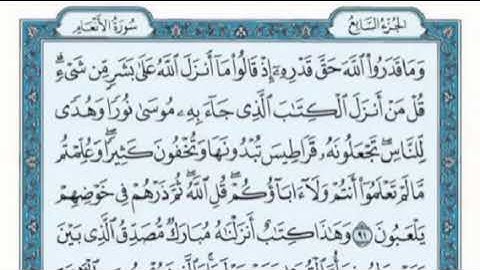 سُورَةُ الأَنْعَامِ
الجُزْءُ السَّابِعُ
وَمَا قَدَرُوا۟ ٱللَّهَ حَقَّ قَدْرِهِۦٓ إِذْ قَالُوا۟ مَآ أَنزَلَ ٱللَّهُ عَلَىٰ بَشَرٍ مِّن شَىْءٍ ۗ
قُلْ مَنْ أَنزَلَ ٱلْكِتَٰبَ ٱلَّذِى جَآءَ بِهِۦ مُوسَىٰ نُورًا وَهُدًى
لِّلنَّاسِ ۖ تَجْعَلُونَهُۥ قَرَاطِيسَ تُبْدُونَهَا وَتُخْفُونَ كَثِيرًا ۖ وَعُلِّمْتُم
مَّا لَمْ تَعْلَمُوٓا۟ أَنتُمْ وَلَآ ءَابَآؤُكُمْ ۖ قُلِ ٱللَّهُ ۖ ثُمَّ ذَرْهُمْ فِى خَوْضِهِمْ
يَلْعَبُونَ ٩١ وَهَٰذَا كِتَٰبٌ أَنزَلْنَٰهُ مُبَارَكٌ مُّصَدِّقُ ٱلَّذِى بَيْنَ